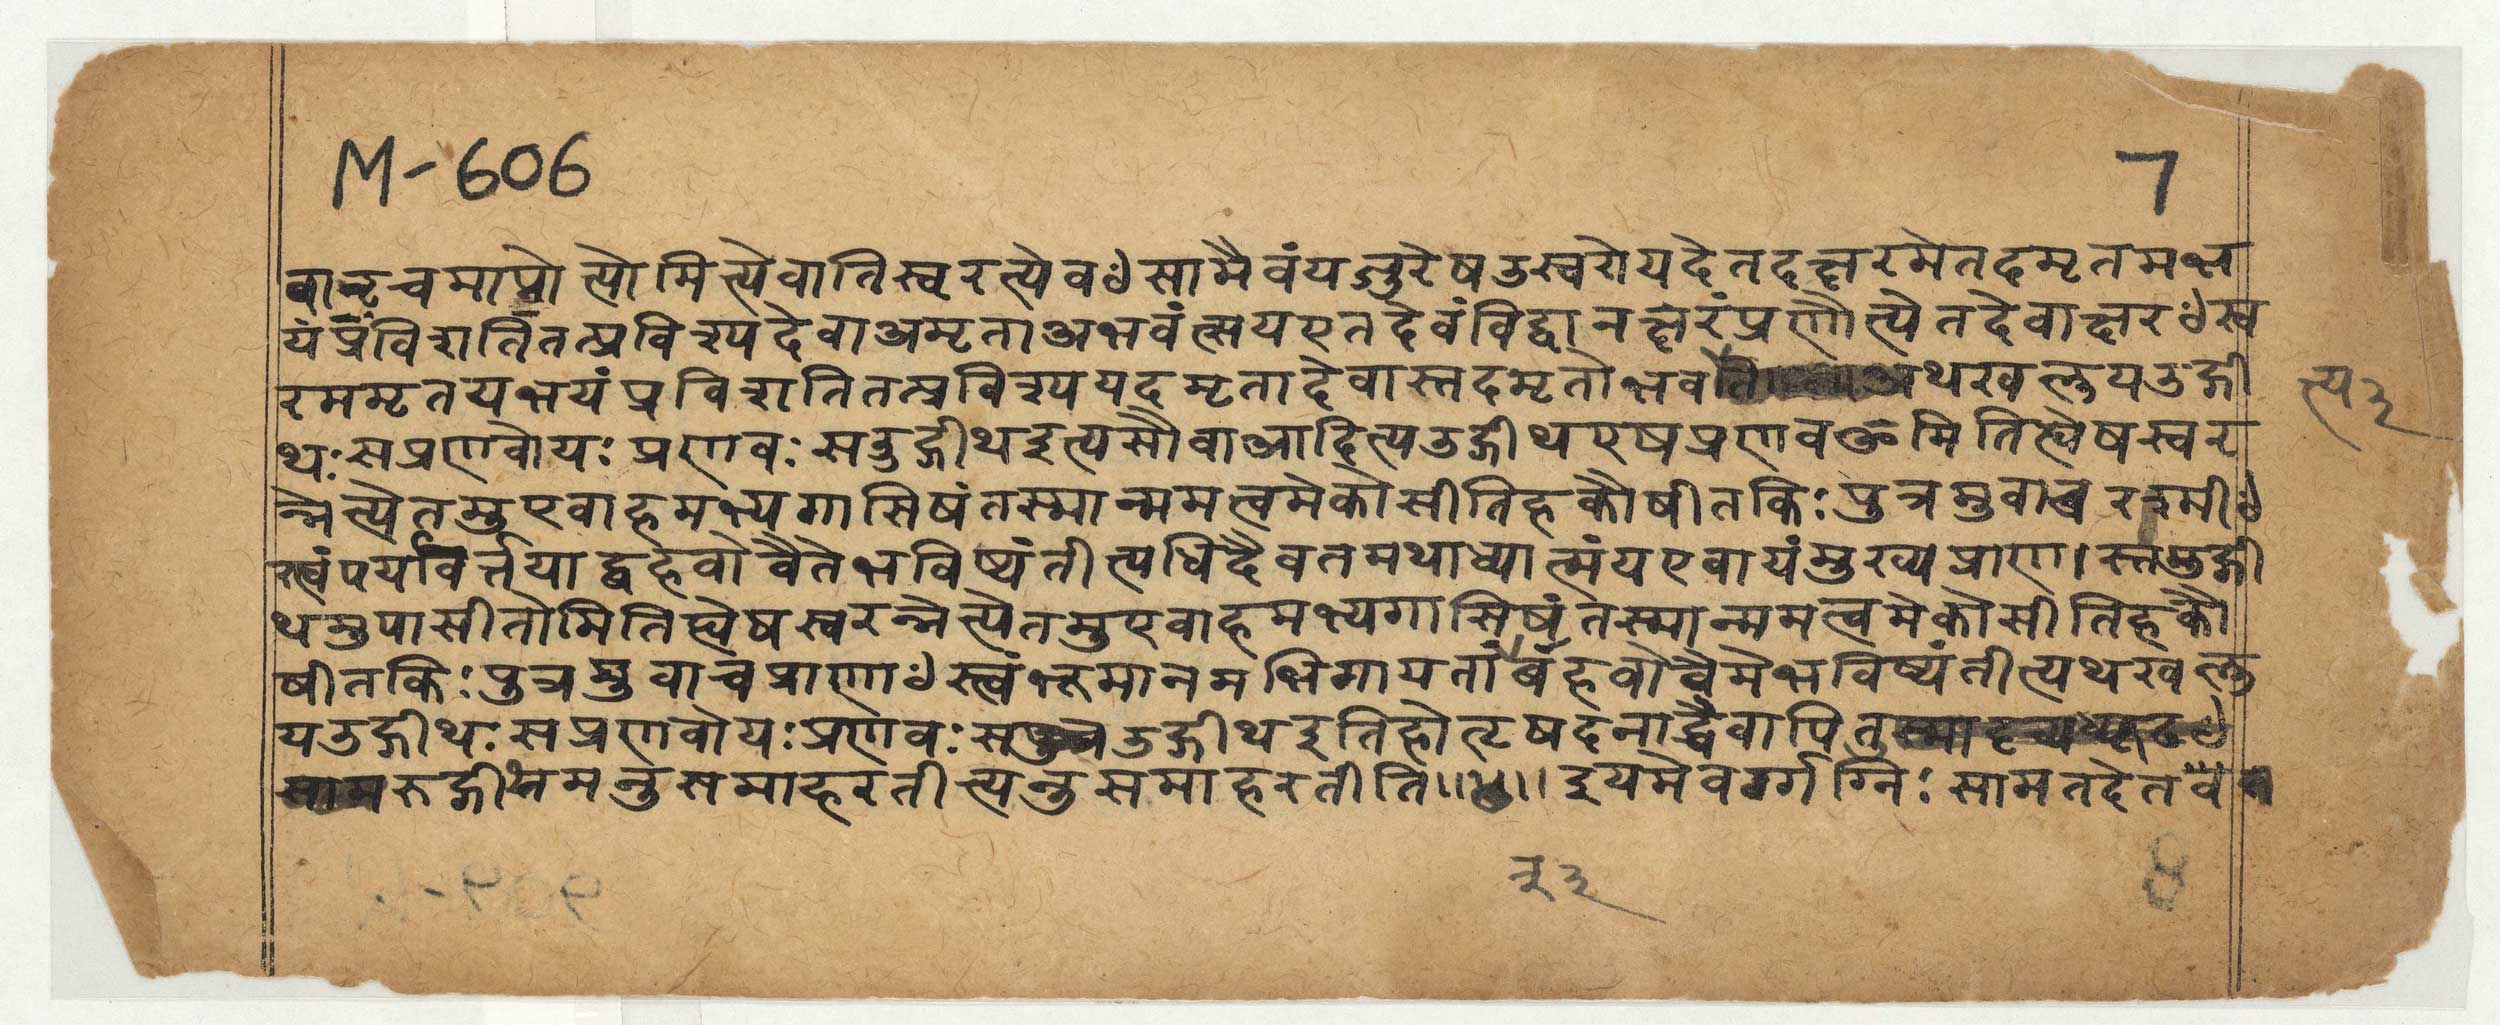 M-606
7
वाऋचमाप्नोत्योमित्येवातिस्वरत्येवꣳसामैवंयजुरेषउस्वरोयदेतदक्षरमेतदमृतमभ
यंप्रविशतितत्प्रविश्यदेवाअमृताअभवंत्सयएतदेवंविद्वानक्षरंप्रणौत्येतदेवाक्षरꣳस्व
रममृतयभयंप्रविशतितत्प्रविश्ययदमृतादेवास्तदमृतोभवति अथखलुयउद्गी
त्य३
थःसप्रणवोयःप्रणवःसउद्गीथइत्यसौवाआदित्यउद्गीथएषप्रणवॐमितिह्येषस्वर
न्नेत्येतमुएवाहमभ्यगासिषंतस्मान्ममत्वमेकोसीतिहकौषीतकिःपुत्रमुवाचरश्मीꣳ
स्त्वंपर्यावर्त्तयाद्बहवोवैतेभविष्यंतीत्यधिदैवतमथाध्यात्मंयएवायंमुख्यप्राणस्तमुद्गी
थमुपासीतोमितिह्येषस्वरन्नेत्येतमुएवाहमभ्यगासिषंतस्मान्ममत्वमेकोसीतिहकौ
षीतकिःपुत्रमुवाचप्राणाꣳस्त्वंभूमानमभिगायतांबहवोवैमेभविष्यंतीत्यथखलु
यउद्गीथःसप्रणवोयःप्रणवःस उद्गीथइतिहोतृषदनाद्धैवापितु
रुद्गीथमनुसमाहरतीत्यनुसमाहरतीति॥५॥इयमेवर्गग्निःसामतदेत
नु३